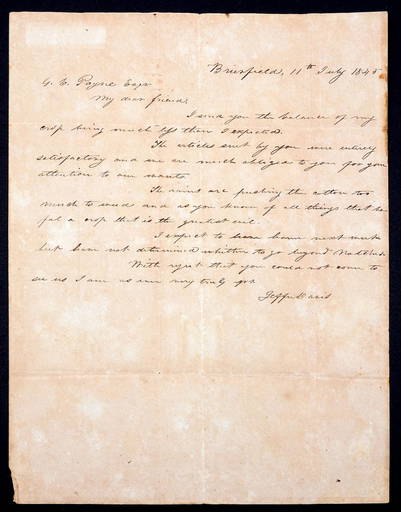 Brierfield, 11th July 1845
My dear friend,
I send you the balance of my
crop being much less than I expected.
The articles sent by you were entirely
satisfactory and we are much obliged to you for your
attention to our wants.
The rains are pushing the cotton too
much to weed and as you know of all things that be
fal a crop that is the greatest evil.
I expect to leave home next week
but have not determined whether to go beyond Natchez.
With regret that you could not come to
see us I am as ever very truly yrs.
Jeffn Davis